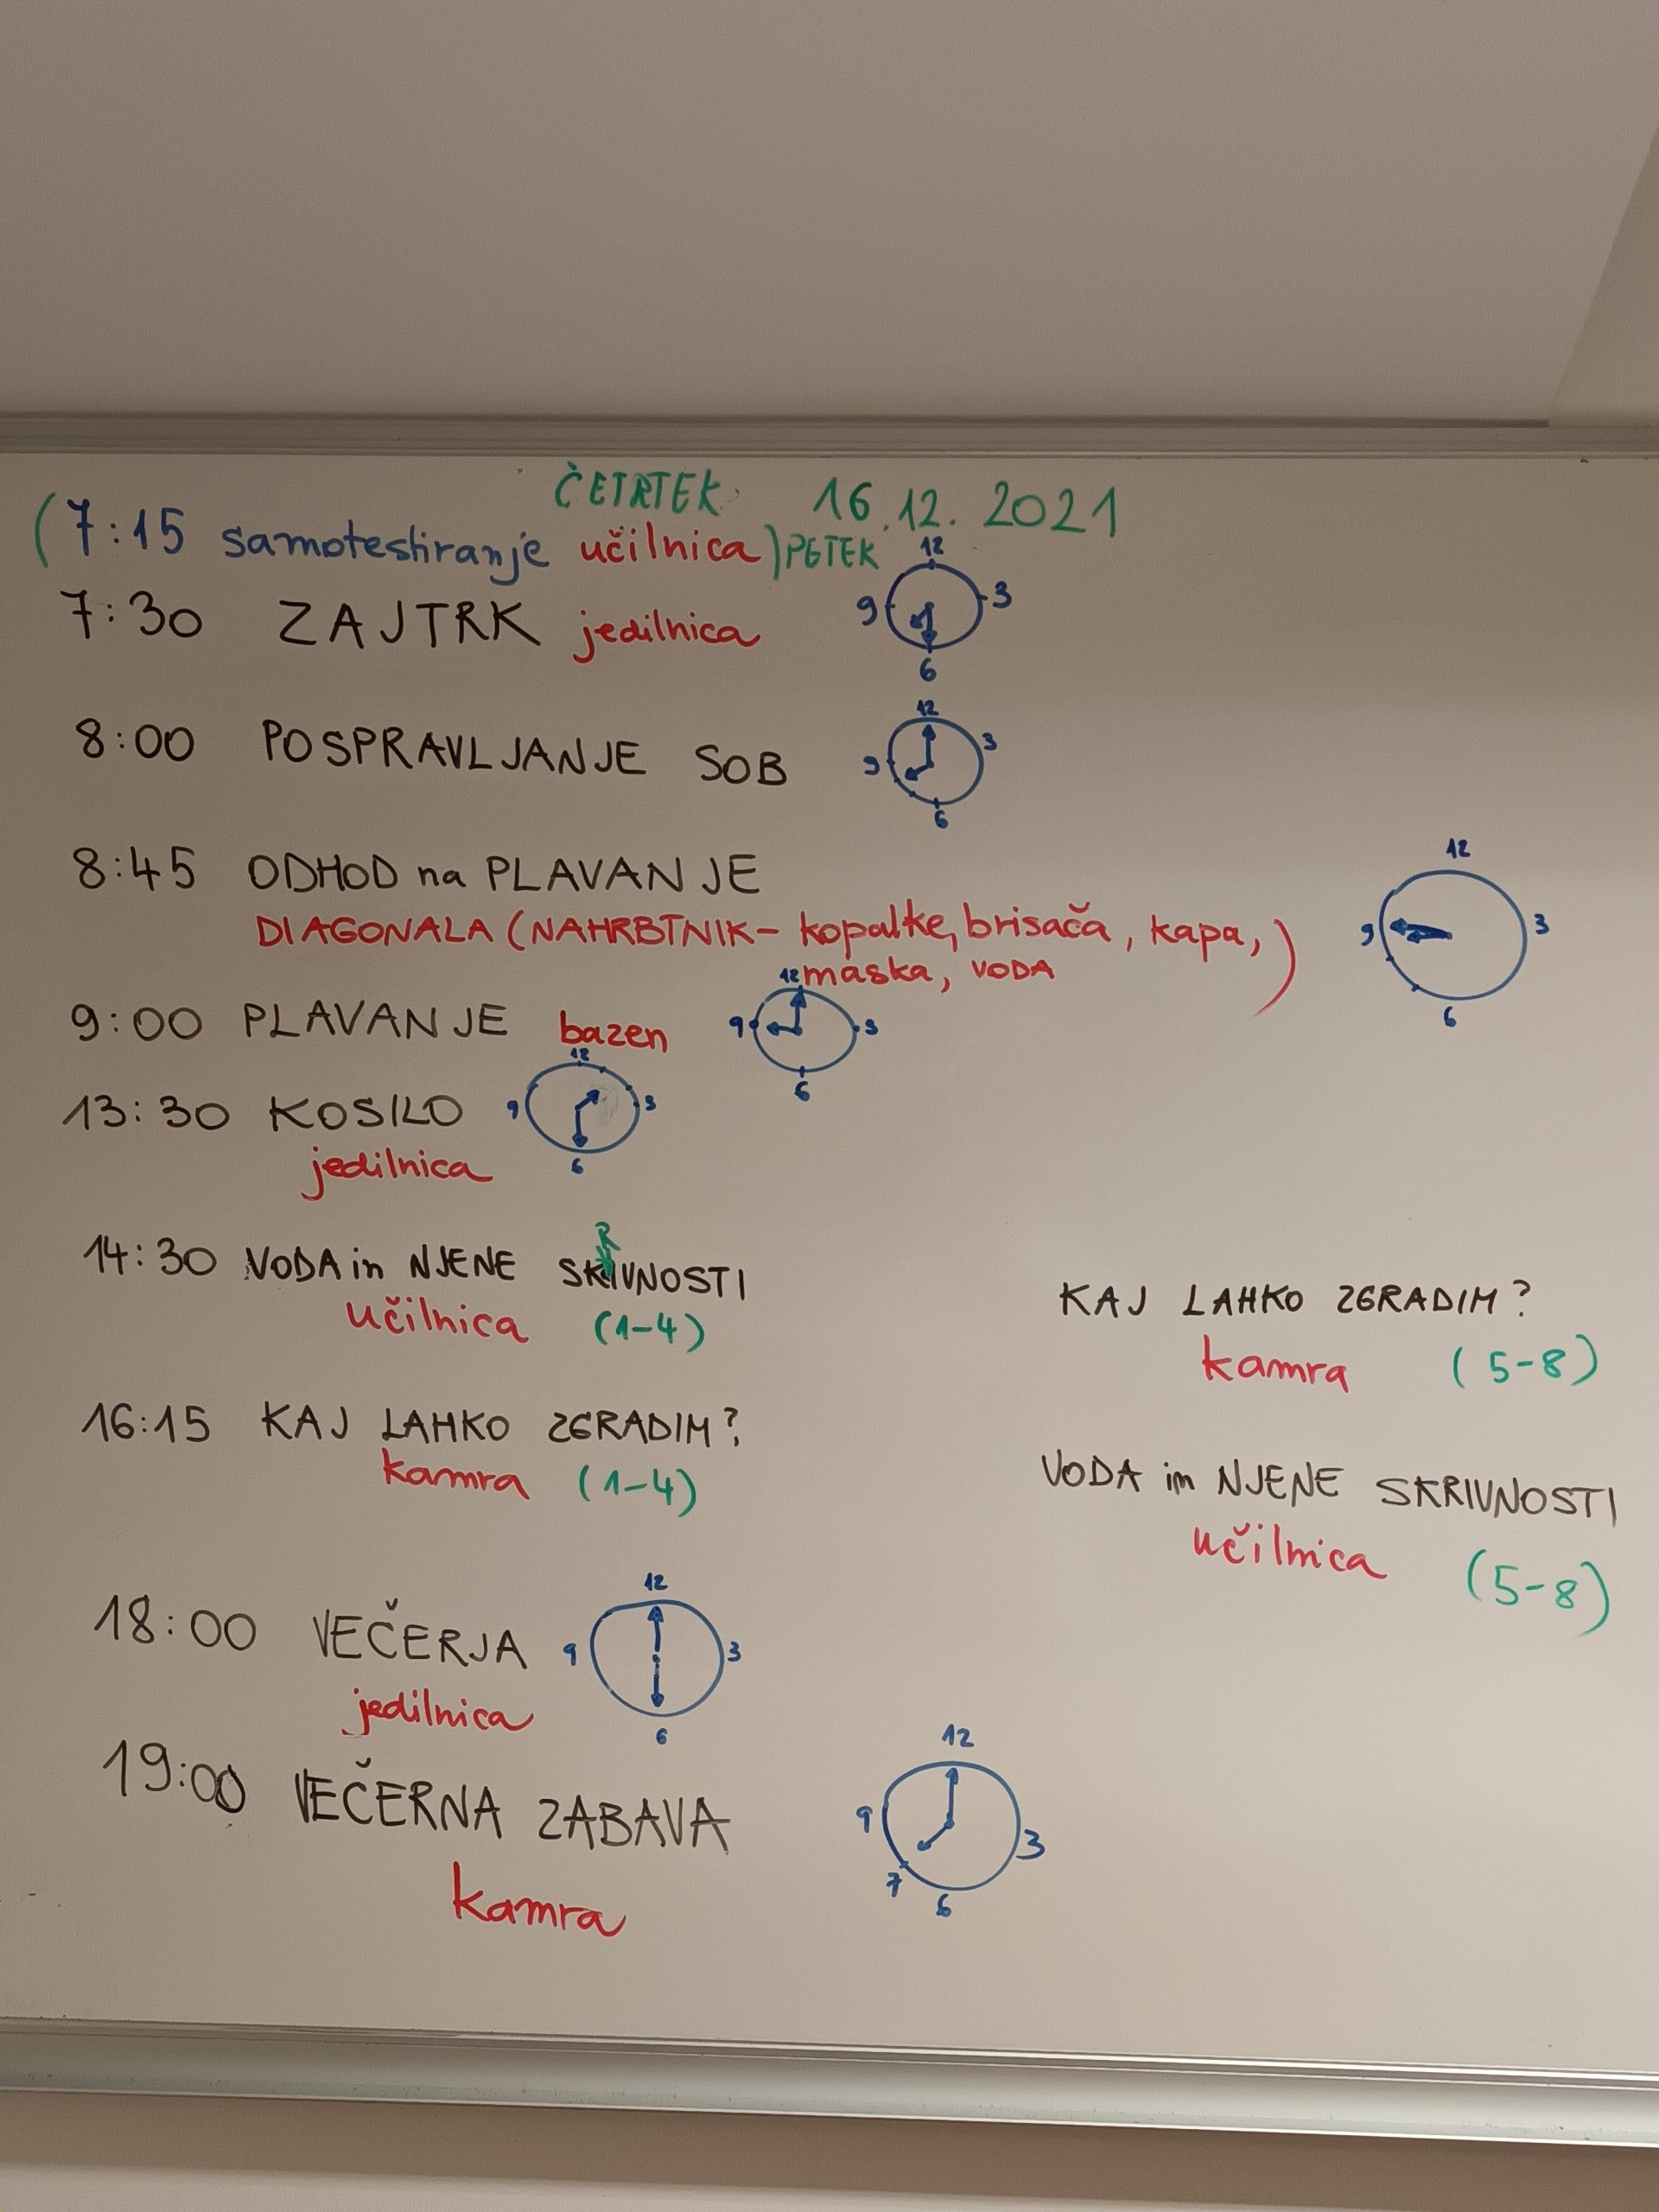 ČETRTEK 16.12.2021
(7:15 samotestiranje učilnica) PETEK
7:30 ZAJTRK jedilnica
12
9 3
6
8:00 POSPRAVLJANJE SOB
12
9 3
6
8:45 ODHOD na PLAVANJE
DIAGONALA (NAHRBTNIK- kopalke, brisača, kapa,)
maska, VODA
12
9 3
6
9:00 PLAVANJE bazen
12
9 3
6
13:30 KOSILO
jedilnica
12
9 3
6
14:30 VODA in NJENE SKRIVNOSTI
učilnica (1-4)
KAJ LAHKO ZGRADIM?
kamra (5-8)
16:15 KAJ LAHKO ZGRADIM?
kamra (1-4)
VODA in NJENE SKRIVNOSTI
učilnica (5-8)
18:00 VEČERJA
jedilnica
12
9 3
6
19:00 VEČERNA ZABAVA
kamra
12
9 3
7 6